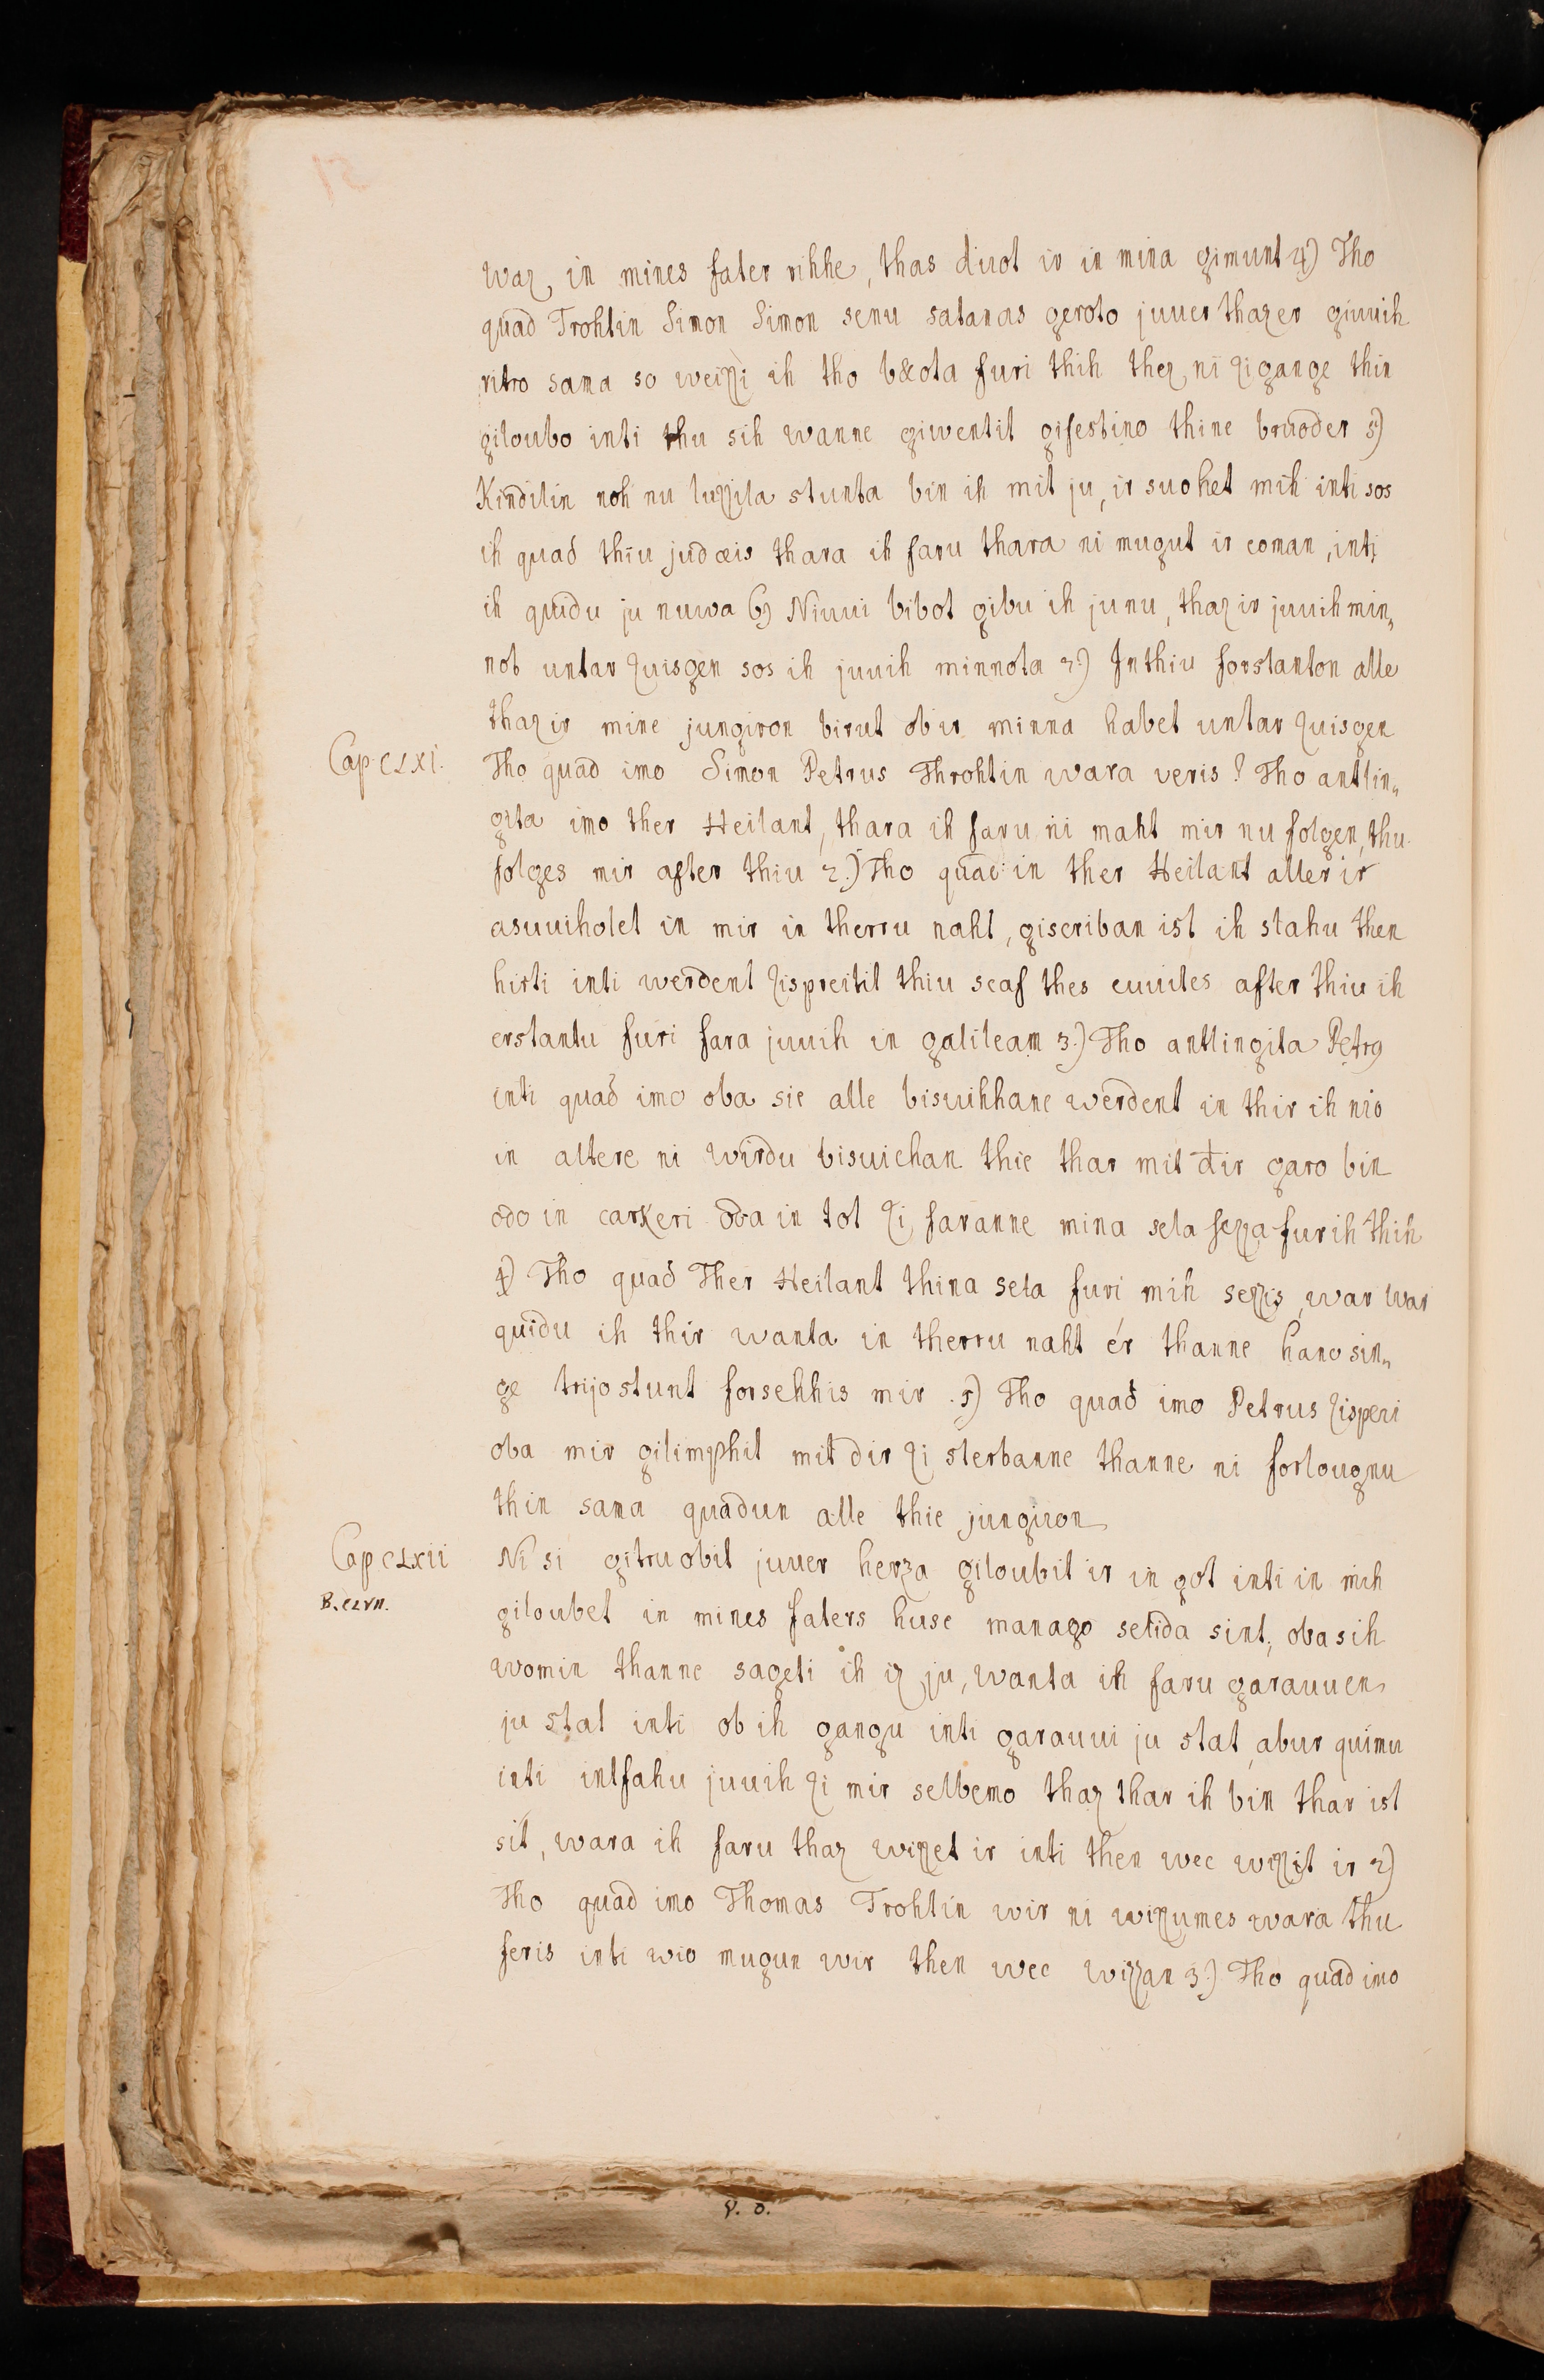 waz, in mines fater rihhe, thas duot ir in mina gimunt 4) Tho
quad Trohtin Simon Simon senu satanas geroto juuer thazer giuuih
ritro sama so weizzi ih tho b&ota furi thih thez ni zigange thin
giloubo inti thu sih wanne giwentit gifestino thine bruoder 5)
Kindilin noh nu luzzila stunta bin ih mit ju, ir suohet mih inti sos
ih quad thiu judæis thara ih faru thara ni mugut ir coman, inti
ih quidu ju nuwa 6) Niuui bibot gibu ih ju nu, thaz ir juuih min„
not untar zuisgen sos ih juuih minnota 7) In thiu forstanton alle
thaz ir mine jungiron birut ob ir minna habet untar zuisgen
Cap. CLXI. Tho quad imo Simon Petrus Throhtin wara veris? Tho antlin„
gita imo ther Heilant, thara ih faru ni maht mir nu folgen, thu
folges mir after thiu 2.) Tho quad in ther Heilant aller ir
asuuihotet in mir in therru naht, giscriban ist ih slahu then
hirti inti werdent zispreitit thiu scaf thes euuites after thiu ih
erstantu furi fara juuih in galileam 3.) Tho antlingita Petrꝰ
inti quad imo oba sie alle bisuihhane werdent in thir ih nio
in altere ni wirdu bisuichan thie thar mit dir garo bin
odo in carkeri oba in tot zi faranne mina sela sezza furih thih
4) Tho quad Ther Heilant thina sela furi mih sezzis, war war
quidu ih thir wanta in therru naht ér thanne hano sin„
ge trijostunt forsehhis mir. 5) Tho quad imo Petrus zisperi
oba mir gilimphit mit dir zi sterbanne thanne ni forlougnu
thin sama quadun alle thie jungiron
Cap CLXII Ni si gitruobit juuer herza giloubit ir in got inti in mih
B. CLVII. giloubet in mines faters huse manago selida sint, oba sih
womin thanne sageti ih iz ju, wanta ih faru garauuen
ju stat inti ob ih gangu inti garauui ju stat, abur quimu
inti intfahu juuih zi mir selbemo thaz thar ih bin thar ist
sit, wara ih faru thaz wizzet ir inti then wec wizzit ir 2)
Tho quad imo Thomas Trohtin wir ni wizzumes wara thu
feris inti wio mugun wir then wec wizzan 3.) Tho quad imo